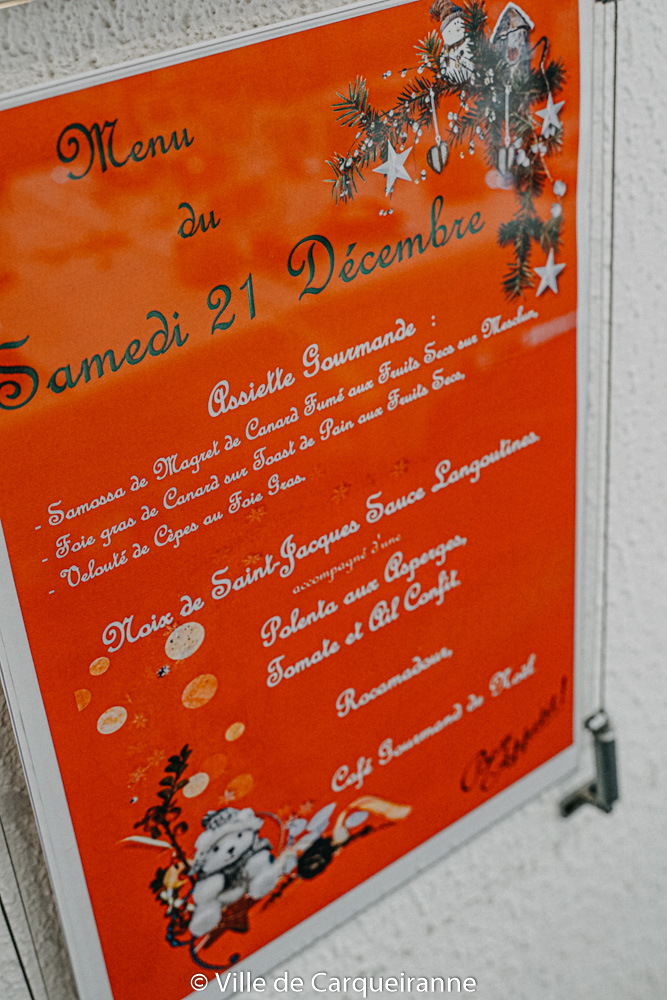 Menu
du
Samedi 21 Décembre
Assiette Gourmande :
- Samossa de Magret de Canard Fumé aux Fruits Secs sur Mesclun,
- Foie gras de Canard sur Toast de Pain aux Fruits Secs,
- Velouté de Cèpes au Foie Gras.
Noix de Saint-Jacques Sauce Langoutines.
accompagné d'une
Polenta aux Asperges,
Tomate et Ail Confit.
Rocamadour,
Café Gourmand de Noël
Bon Appétit !
© Ville de Carqueiranne